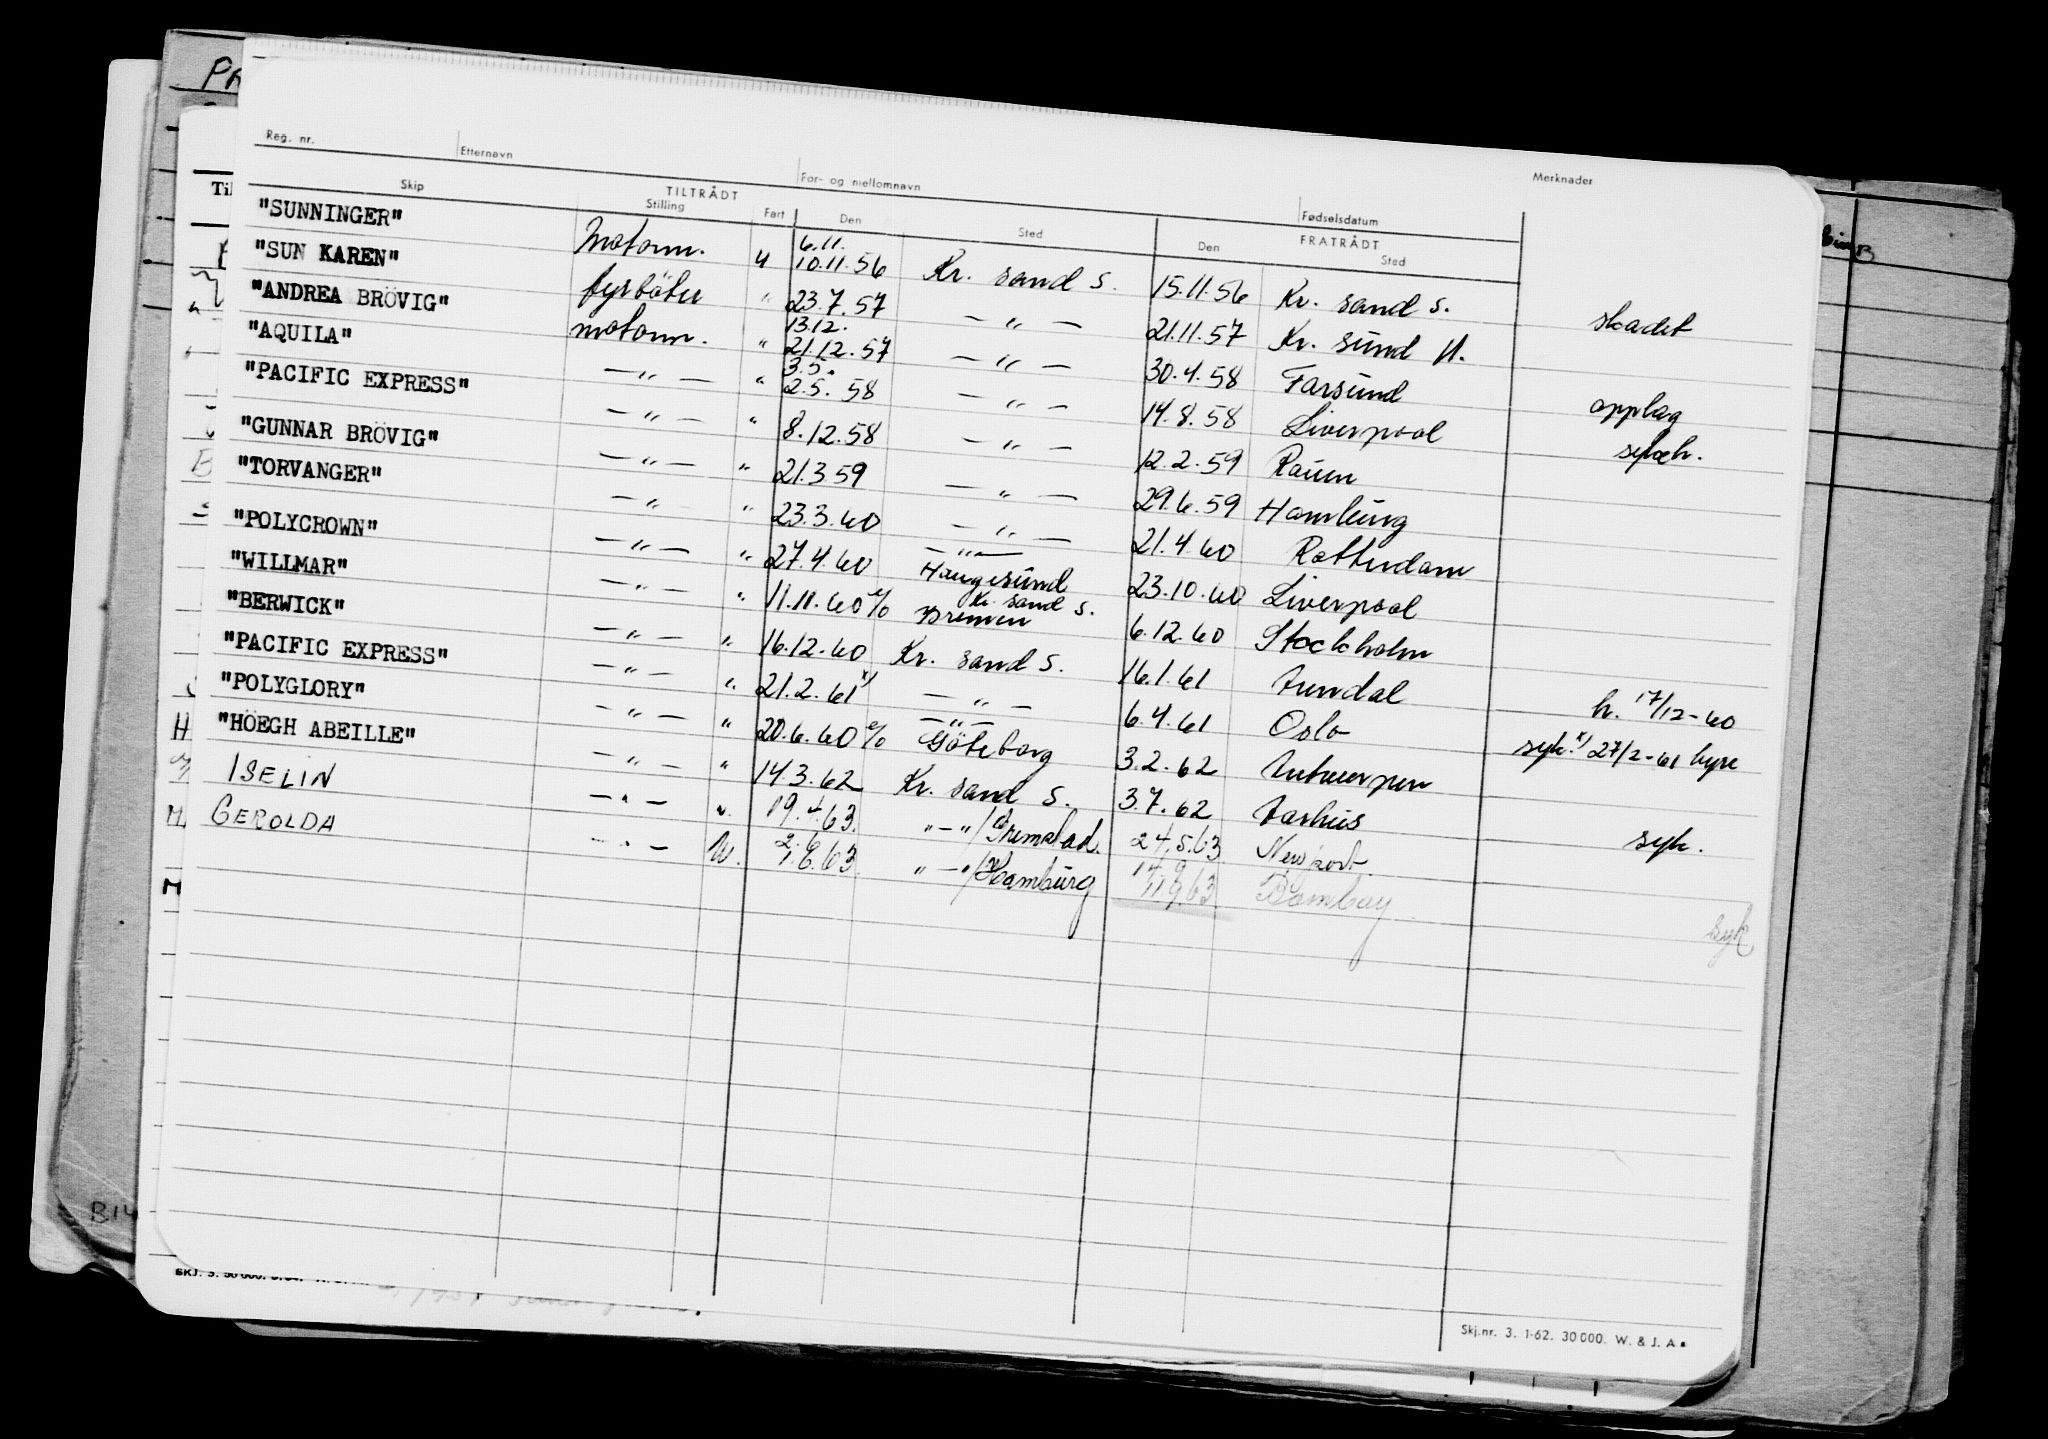 PA
Reg. nr. Etternavn For- og mellomnavn Fødselsdatum Merknader
TILTRÅDT FRATRÅDT
Skip Stilling Fart Den Sted Den Sted
"SUNNINGER" Motorm. u 6.11. 10.11.56 Kr. sand S. 15.11.56 Kr. sand S. skadet
"SUN KAREN" fyrbøter " 23.7.57 — " — 21.11.57 Kr. sund N.
"ANDREA BRÖVIG" motorm. " 13.12. 21.12.57 — " — 30.4.58 Farsund opplag
"AQUILA" — " — " 3.5. 2.5.58 — " — 14.8.58 Liverpool sykeh.
"PACIFIC EXPRESS" — " — " 8.12.58 — " — 12.2.59 Raum
"GUNNAR BRÖVIG" — " — " 21.3.59 — " — 29.6.59 Hamburg
"TORVANGER" — " " 23.3.60 — " — 21.4.60 Rotterdam
"POLYCROWN" — " — " 27.4.60 — " — Haugesund 23.10.60 Liverpool
"WILLMAR" — " — " 11.11.60 e/o Kr. sand S. Bremen 6.12.60 Stockholm
"BERWICK" — " — " 16.12.60 Kr. sand S. 16.1.61 Arendal h. 17/12-60
"PACIFIC EXPRESS" — " — " 21.2.61 x) — " — 6.4.61 Oslo syk. x) 27/2-61 hyre
"POLYGLORY" — " — " 20.6.60 e/o — " — Göteborg 3.2.62 Antwerpen
"HÖEGH ABEILLE" — " — " 14.3.62 Kr. sand S. 3.7.62 Aarhus syk.
ISELIN — " — u. 19.4.63. " — "/Grimstad. 24.5.63 Newport.
GEROLDA — " — U. 2.6 1.6.63. " — "/Hamburg 14.9 11.9.63 Bombay. syk
B14
Skj.nr. 3. 1-62. 30 000. W. & J. A.